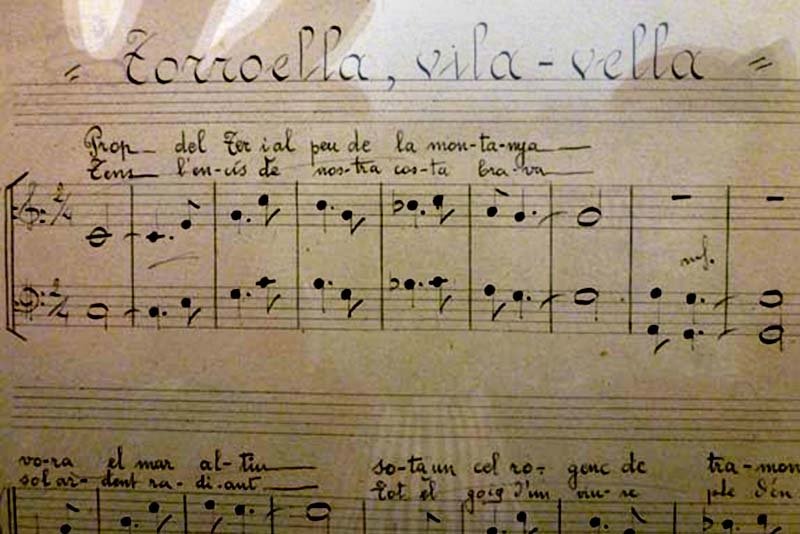 = Torroella, vila-vella =
Prop_ del Ter i al peu de la mon-ta-nya___
Tens_ l'en-cís de nos-tra cos-ta bra-va___
2/4
mf.
2/4
vo-ra el mar al-tiu___ so-ta un cel ro- genc de tra-mon
sol ar- dent ra-di-ant___ tot el goig d'un viu-re ple d'en